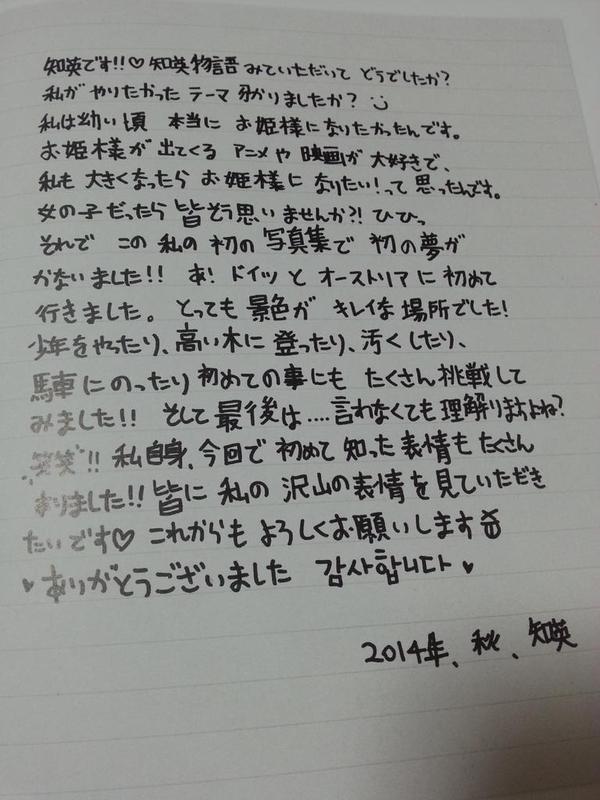 知英です!!♡ 知英物語 みていただいて どうでしたか?
私が やりたかった テーマ 分かりましたか?
私は幼い頃 本当に お姫様になりたかったんです。
お姫様が 出てくる アニメや 映画が 大好きで、
私も 大きくなったら お姫様に なりたい!って 思ったんです。
女の子だったら 皆そう思いませんか?! ひひっ
それで この 私の 初の 写真集で 初の夢が
かないました!! あ! ドイツ と オーストリア に 初めて
行きました。 とっても 景色が キレイな 場所でした!
少年をやったり、高い木に 登ったり、汚くしたり、
馬車に のったり 初めての事にも たくさん 挑戦して
みました!! そして 最後は....言わなくても 理解りますよね?
笑笑!! 私自身、今回で 初めて 知った 表情も たくさん
ありました!! 皆に 私の 沢山の表情を 見ていただき
たいです♡ これからも よろしくお願いします
♥ ありがとうございました 감사합니다 ♥
2014年、秋、知英